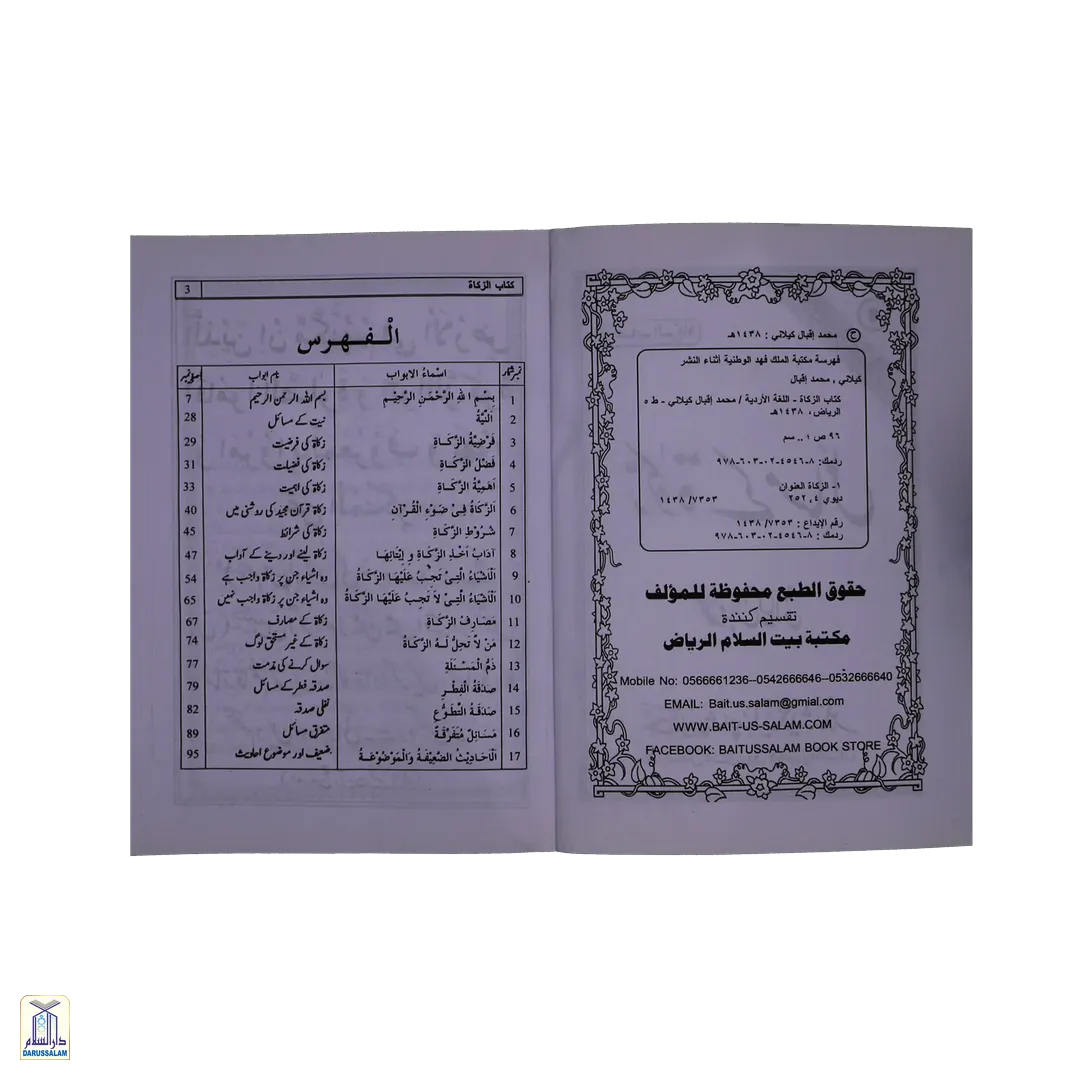 ح محمد إقبال كيلاني : ١٤٣٨هـ
فهرسة مكتبة الملك فهد الوطنية أثناء النشر
كيلاني ، محمد إقبال
كتاب الزكاة - اللغة الأردية / محمد إقبال كيلاني - ط ٥
الرياض، ١٤٣٨هـ
٩٦ ص ؛ .. سم
ردمك: ٨-٤٥٤٦-٠٢-٦٠٣-٩٧٨
١- الزكاة العنوان
ديوي ٢٥٢,٤ ١٤٣٨/٧٣٥٣
رقم الإيداع: ١٤٣٨/٧٣٥٣
ردمك : ٨-٤٥٤٦-٠٢-٦٠٣-٩٧٨
حقوق الطبع محفوظة للمؤلف
تقسیم کنندہ
مكتبة بيت السلام الرياض
Mobile No: 0566661236--0542666646--0532666640
EMAIL: Bait.us.salam@gmial.com
WWW.BAIT-US-SALAM.COM
FACEBOOK: BAITUSSALAM BOOK STORE
كتاب الزكاة 3
الْـفـهـرس
نمبر شمار اسماءُ الابواب نام ابواب صفحہ نمبر
1 بِسْمِ اللهِ الرَّحْمٰنِ الرَّحِيْمِ بسم اللہ الرحمن الرحیم 7
2 اَلنِّيَّةُ نیت کے مسائل 28
3 فَرْضِيَّةُ الزَّكَـاةِ زکاۃ کی فرضیت 29
4 فَضْلُ الزَّكَـاةِ زکاۃ کی فضیلت 31
5 اَهَمِيَّةُ الزَّكَـاةِ زکاۃ کی اہمیت 33
6 اَلزَّكَاةُ فِـىْ ضَوْءِ الْقُرْآنِ زکاۃ قرآن مجید کی روشنی میں 40
7 شُرُوْطِ الزَّكَـاةِ زکاۃ کی شرائط 45
8 آدَابُ اَخْـذِ الزَّكَـاةِ وَ اِيْتَائِهَا زکاۃ لینے اور دینے کے آداب 47
9 اَلْاَشْيَاءُ الَّتِـىْ تَجِبُ عَلَيْهَا الزَّكَاةُ وہ اشیاء جن پر زکاۃ واجب ہے 54
10 اَلْاَشْيَاءُ الَّتِـىْ لاَ تَجِبُ عَلَيْهَا الزَّكَاةُ وہ اشیاء جن پر زکاۃ واجب نہیں 65
11 مَصَـارِفُ الزَّكَـاةِ زکاۃ کے مصارف 67
12 مَنْ لاَ تَحِلُّ لَـهُ الزَّكَاةُ زکاۃ کے غیر مستحق لوگ 74
13 ذَمُّ الْمَسْـئَلَةِ سوال کرنے کی مذمت 77
14 صَدَقَةُ الْفِطْـرِ صدقہ فطر کے مسائل 79
15 صَدَقَـةُ التَّطَوُّعِ نفلی صدقہ 82
16 مَسَـائِلُ مُتَفَرِّقَـةٌ متفرق مسائل 89
17 اَلْاَحَادِيْثُ الضَّعِيْفَـةُ وَالْمَوْضُوْعَـةُ ضعیف اور موضوع احادیث 95
دار السلام
DARUSSALAM